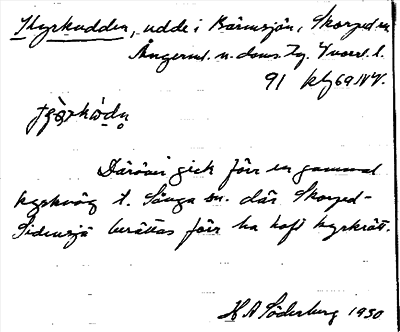 Kyrkudden, udde i Bärmsjön, Skorped sn
Ångerml. n. doms. tg. Y l.
91
Däröver gick förr en gammal
kyrkväg t. Sånga sn. där Skorped-
Sidensjö berättas förr ha haft kyrkrätt.
H A Söderberg 1930